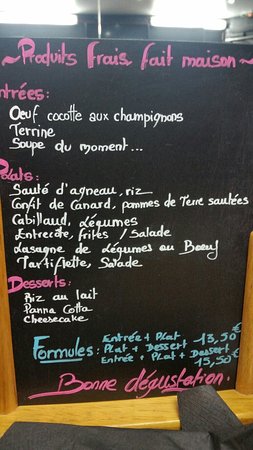 ~Produits frais fait maison~
Entrées:
Oeuf cocotte aux champignons
Terrine
Soupe du moment...
Plats:
Sauté d'agneau, riz
Confit de Canard, pommes de Terre sautées
Cabillaud, Légumes
Entrecôte, frites / Salade
Lasagne de Légumes ou Bœuf
Tartiflette, Salade
Desserts:
Riz au lait
Panna Cotta
Cheesecake
Formules: Entrée + Plat
Plat + Dessert 13,50€
Entrée + Plat + Dessert
15,50€
Bonne dégustation.